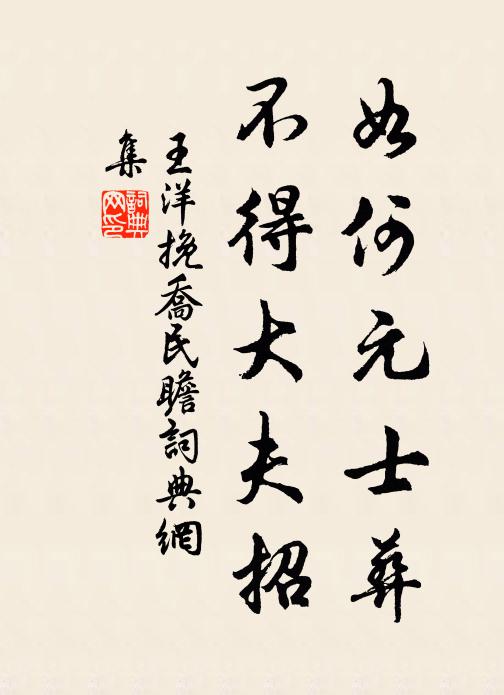 如何元士葬
不得大夫招
王洋挽喬民瞻詞典網
集
詞典网印